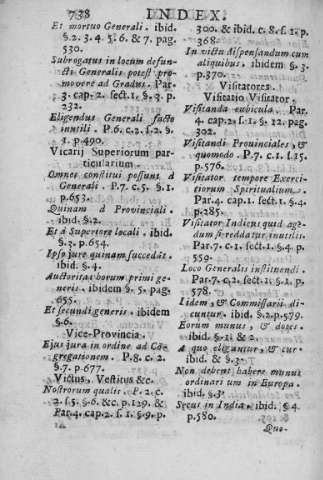 738 INDEX.
Et mortuo Generali. ibid.
§.2. 3. 4. 5. 6. & 7. pag.
530.
Subrogatus in locum defun-
cti Generalis potest pro-
movere ad Gradus. Par.
3. cap. 2. sect. 1. §. 3. p.
232.
Eligendus Generali facto
inutili. P. 6. c. 2. s. 2. §.
1. p. 490.
Vicarij Superiorum par-
ticularium.
Omnes constitui possunt a
Generali. P. 7. c. 5. §. 1.
p. 653.
Quinam a Provinciali.
ibid. §. 2.
Et a Superiore locali. ibid.
§. 3. p. 654.
Ipso jure quinam succedat.
ibid. §. 4.
Auctoritas horum primi ge-
neris. ibidem §. 5. pag.
655.
Et secundi generis. ibidem
§6.
Vice-Provincia.
Ejus jura in ordine ad Cō-
gregationem. P. 8. c. 2.
§. 7. p. 677.
Victus, Vestitus &c.
Nostrorum qualis. P. 2. c.
2. s. 5. §. 6. & c. p. 129. &
Par. 4. cap. 2. s. 1. §. 9. p.
300. & ibid. c. 8. s. 1. p.
368.
In victu dispensandum cum
aliquibus. ibidem §. 3.
p. 370.
Visitatores.
Visitatio Visitator.
Visitanda cubicula. Par.
4. cap. 2. s. 1. §. 12. pag.
302.
Visitandi Provinciales, &
quomodo. P. 7. c. 1. s. 15.
p. 576.
Visitator tempore Exerci-
tiorum Spiritualium.
Par. 4. cap. 1. sect. 1. §. 4.
p. 285.
Visitator Indicus quid agē-
dum si reddatur inutilis.
Par. 7. c. 1. sect. 1. §. 4. p.
559.
Loco Generalis instituendi.
Par. 7. c. 2. sect. 1. §. 1. p.
578.
Iidem, & Commissarii di-
cuntur. ibid. §. 2. p. 579.
Eorum munus, & dotes.
ibid. §. 1. & 2.
A quo eligantur, & cur.
ibid. & §. 3.
Non debent habere munus
ordinarium in Europa.
ibid. §. 3.
Secus in India. ibid. § 4.
p. 580.
Quo-